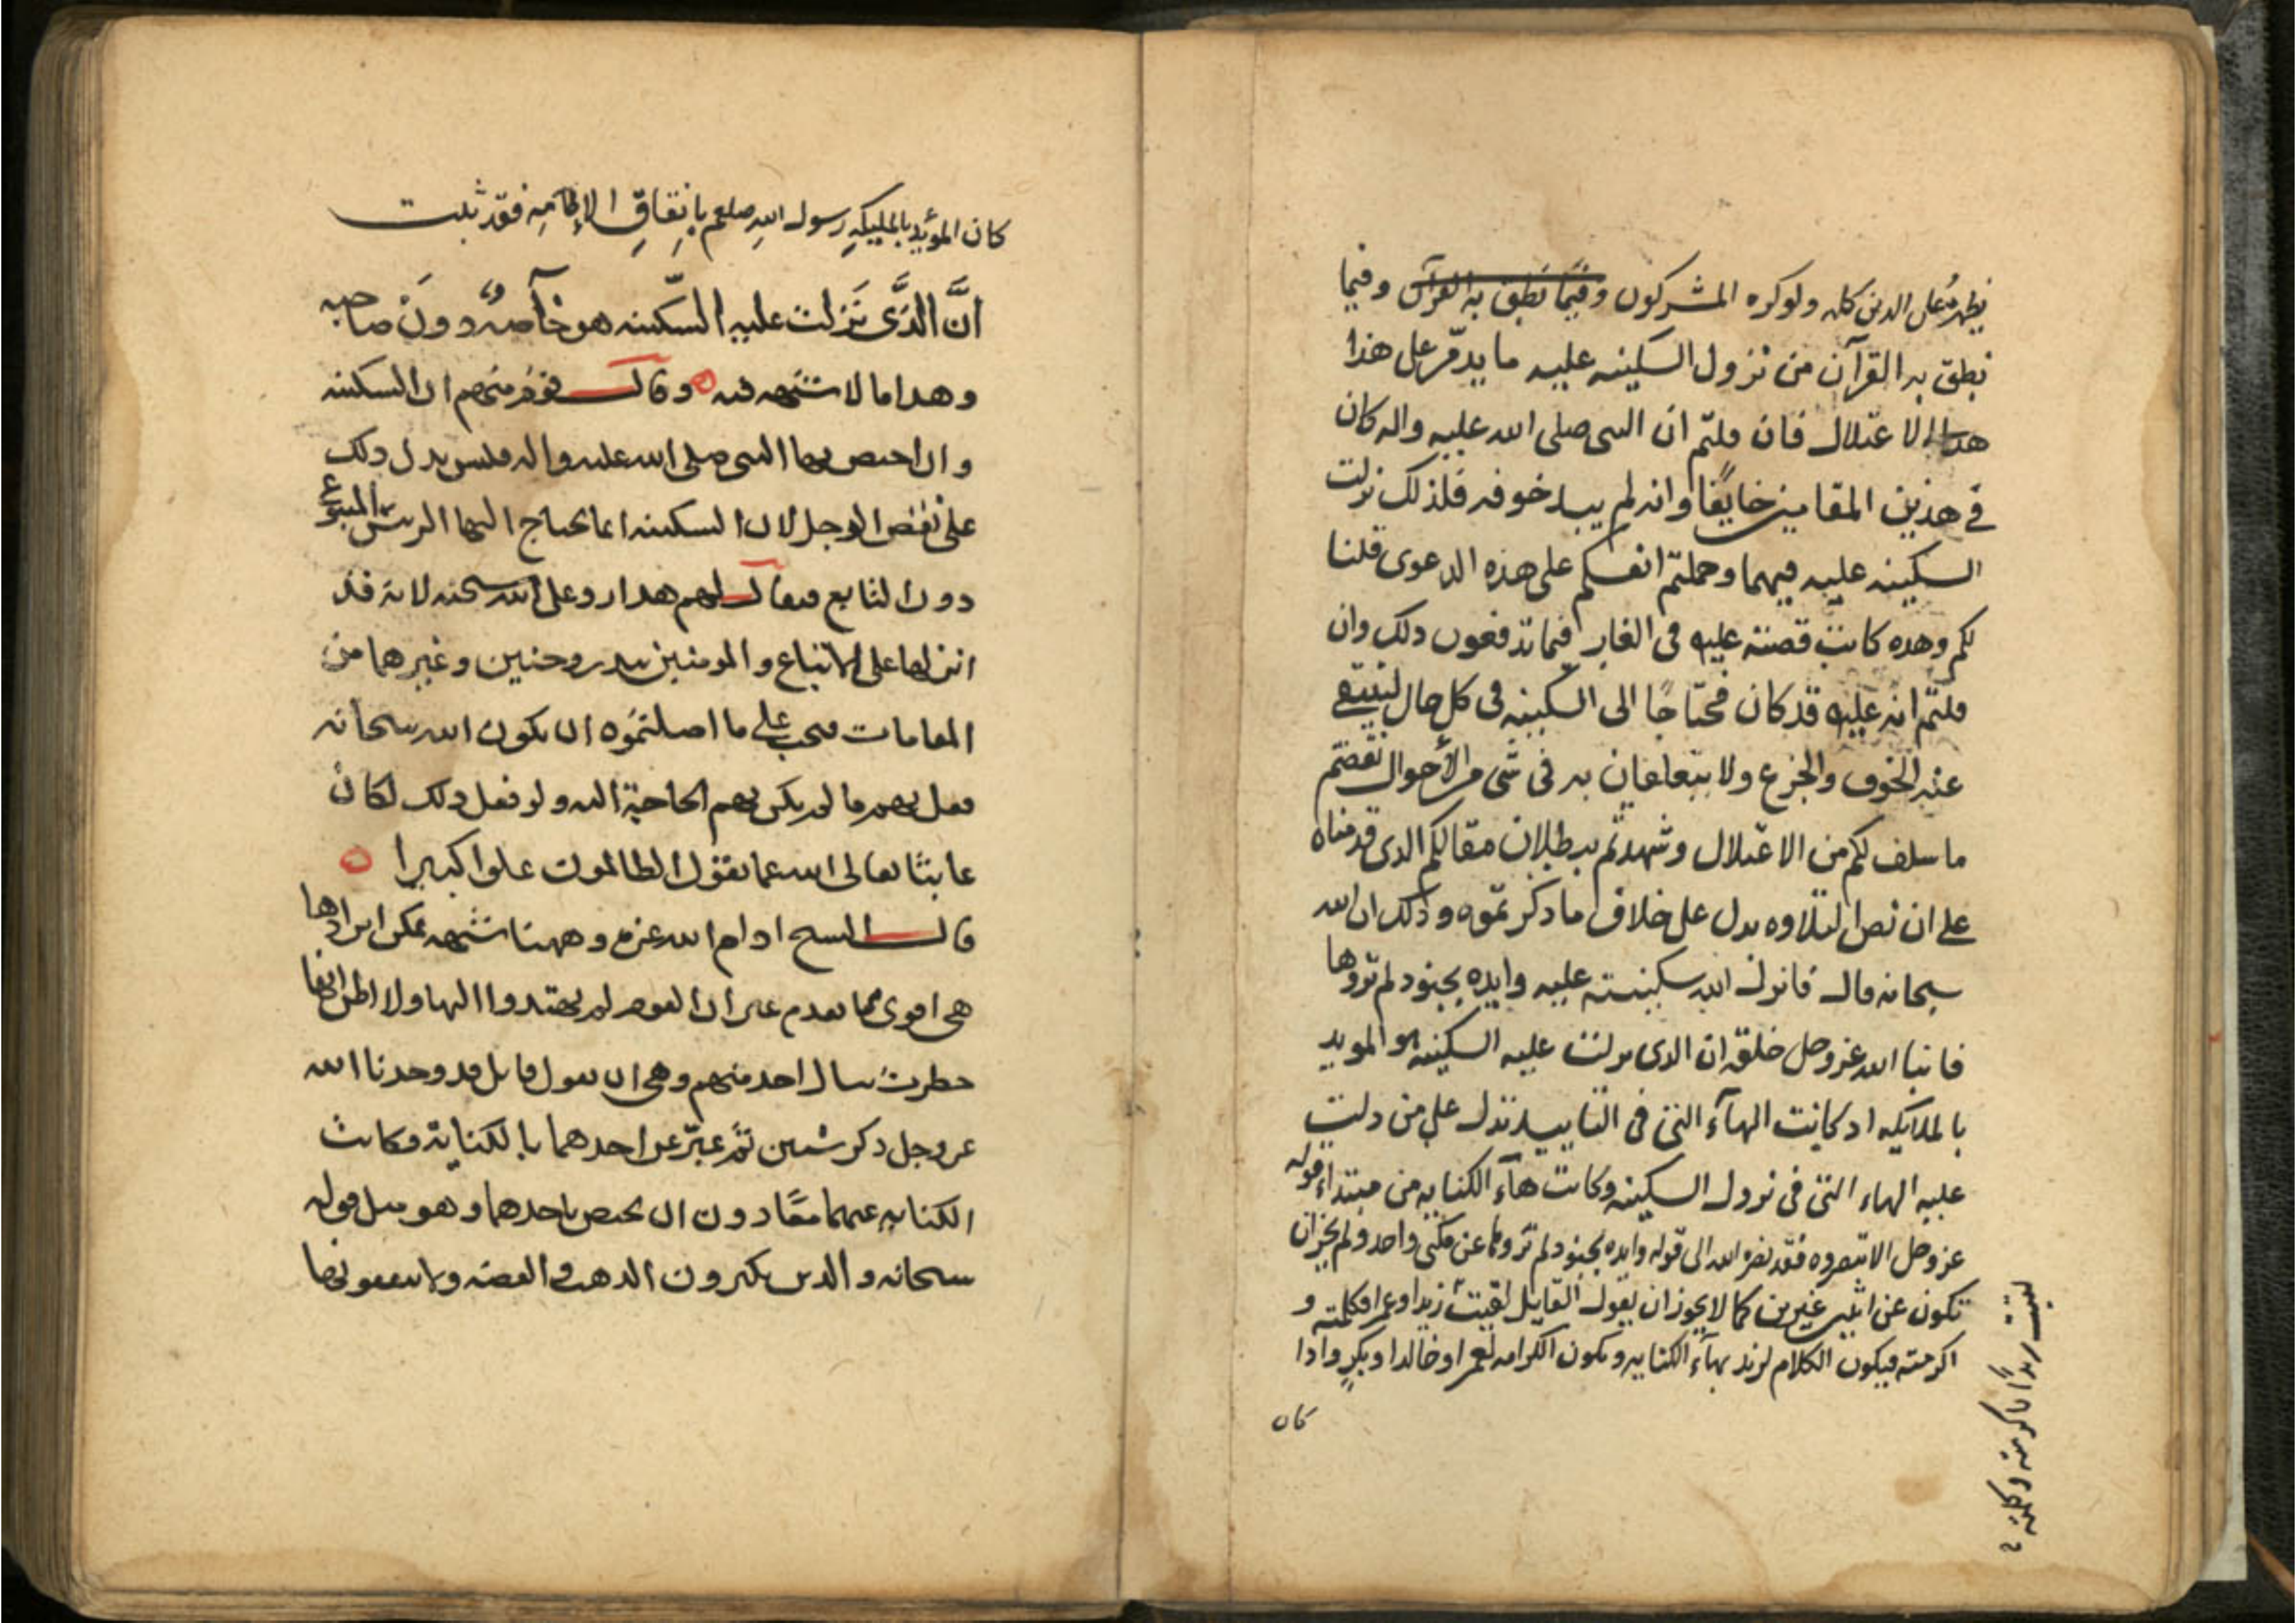 يظهره على الدين كله ولو كره المشركون وفيما نطق به القرآن وفيما
نطق به القرآن من نزول السكينه عليه ما يدمر على هذا
هذا الاعتلال فان قلتم ان النبى صلى الله عليه واله كان
فى هذين المقامين خايفا وانه لم يبد خوفه فلذلك نزلت
السكينه عليه فيهما وحملتم انفسكم على هذه الدعوى قلنا
لكم وهذه كانت قصته عليه فى الغار فبما تدفعون ذلك وان
قلتم انه عليه قد كان محتاجا الى السكينه فى كل حال لينتفى
عنه الخوف والجزع ولا يتعلقان به فى شى من الأحوال نقضتم
ما سلف لكم من الاعتلال وشهدتم ببطلان مقالكم الذى قدمناه
على ان نص التلاوه يدل على خلاف ما ذكرتموه وذلك ان الله
سبحانه قال فانزل الله سكينته عليه وايده بجنود لم تروها
فانبا الله عز وجل خلقه ان الذى نزلت عليه السكينه هو المويد
بالملايكه اذ كانت الهآء التى فى التاييد تدل على من دلت
عليه الهاء التى فى نزول السكينه وكانت هآء الكنايه من مبتداء قوله
عز وجل الا تنصروه فقد نصره الله الى قوله وايده بجنود لم تروها عن مكنى واحد ولم يجز ان
تكون عن اثنين غيرين كما لا يجوز ان يقول القايل لقيت زيدا وعمرا فكلمته و
اكرمته فيكون الكلام لزيد بهآء الكنايه وتكون الكرامه لعمرا وخالدا وبكر واذا
كان
لقيت زيدا فاكرمته وكلمته
كان المؤيد بالمليكه رسول الله صلعم باتفاق الإمامه فقد ثبت
انَّ الذَّى نَزلت عليه السّكينه هو خآصه دون صاحبه
وهذا ما لا شبهه فيه وقال قوم منهم ان السكينه
وان اختص بها النبى صلى الله عليه واله فليس يدل ذلك
على نقض الرجل لان السكينه انما يحتاج اليها الريس المتبوع
دون التابع فيقال لهم هذا رد على الله سبحنه لانه قد
انزلها على الاتباع والمومنين ببدر وحنين وغيرهما من
المقامات فيجب على ما اصلتموه ان يكون الله سبحانه
فعل بهم ما لم يكن بهم الحاجة اليه ولو فعل ذلك لكان
عابثا تعالى الله عما يقول الظالمون علوا كبيرا
قال الشيخ ادام الله عزه وههنا شبهه يمكن ايرادها
هى اقوى مما تقدم غير ان القوم لم يهتدوا اليها ولا اظن انها
خطرت ببال احد منهم وهى ان يقول قايل قد وجدنا الله
عز وجل ذكر شيين ثم عبر عن احدهما بالكناية فكانت
الكنايه عنهما معًا دون ان يختص باحدهما وهو مثل قوله
سبحانه والذين يكنزون الذهب والفضه ولا ينفقونها